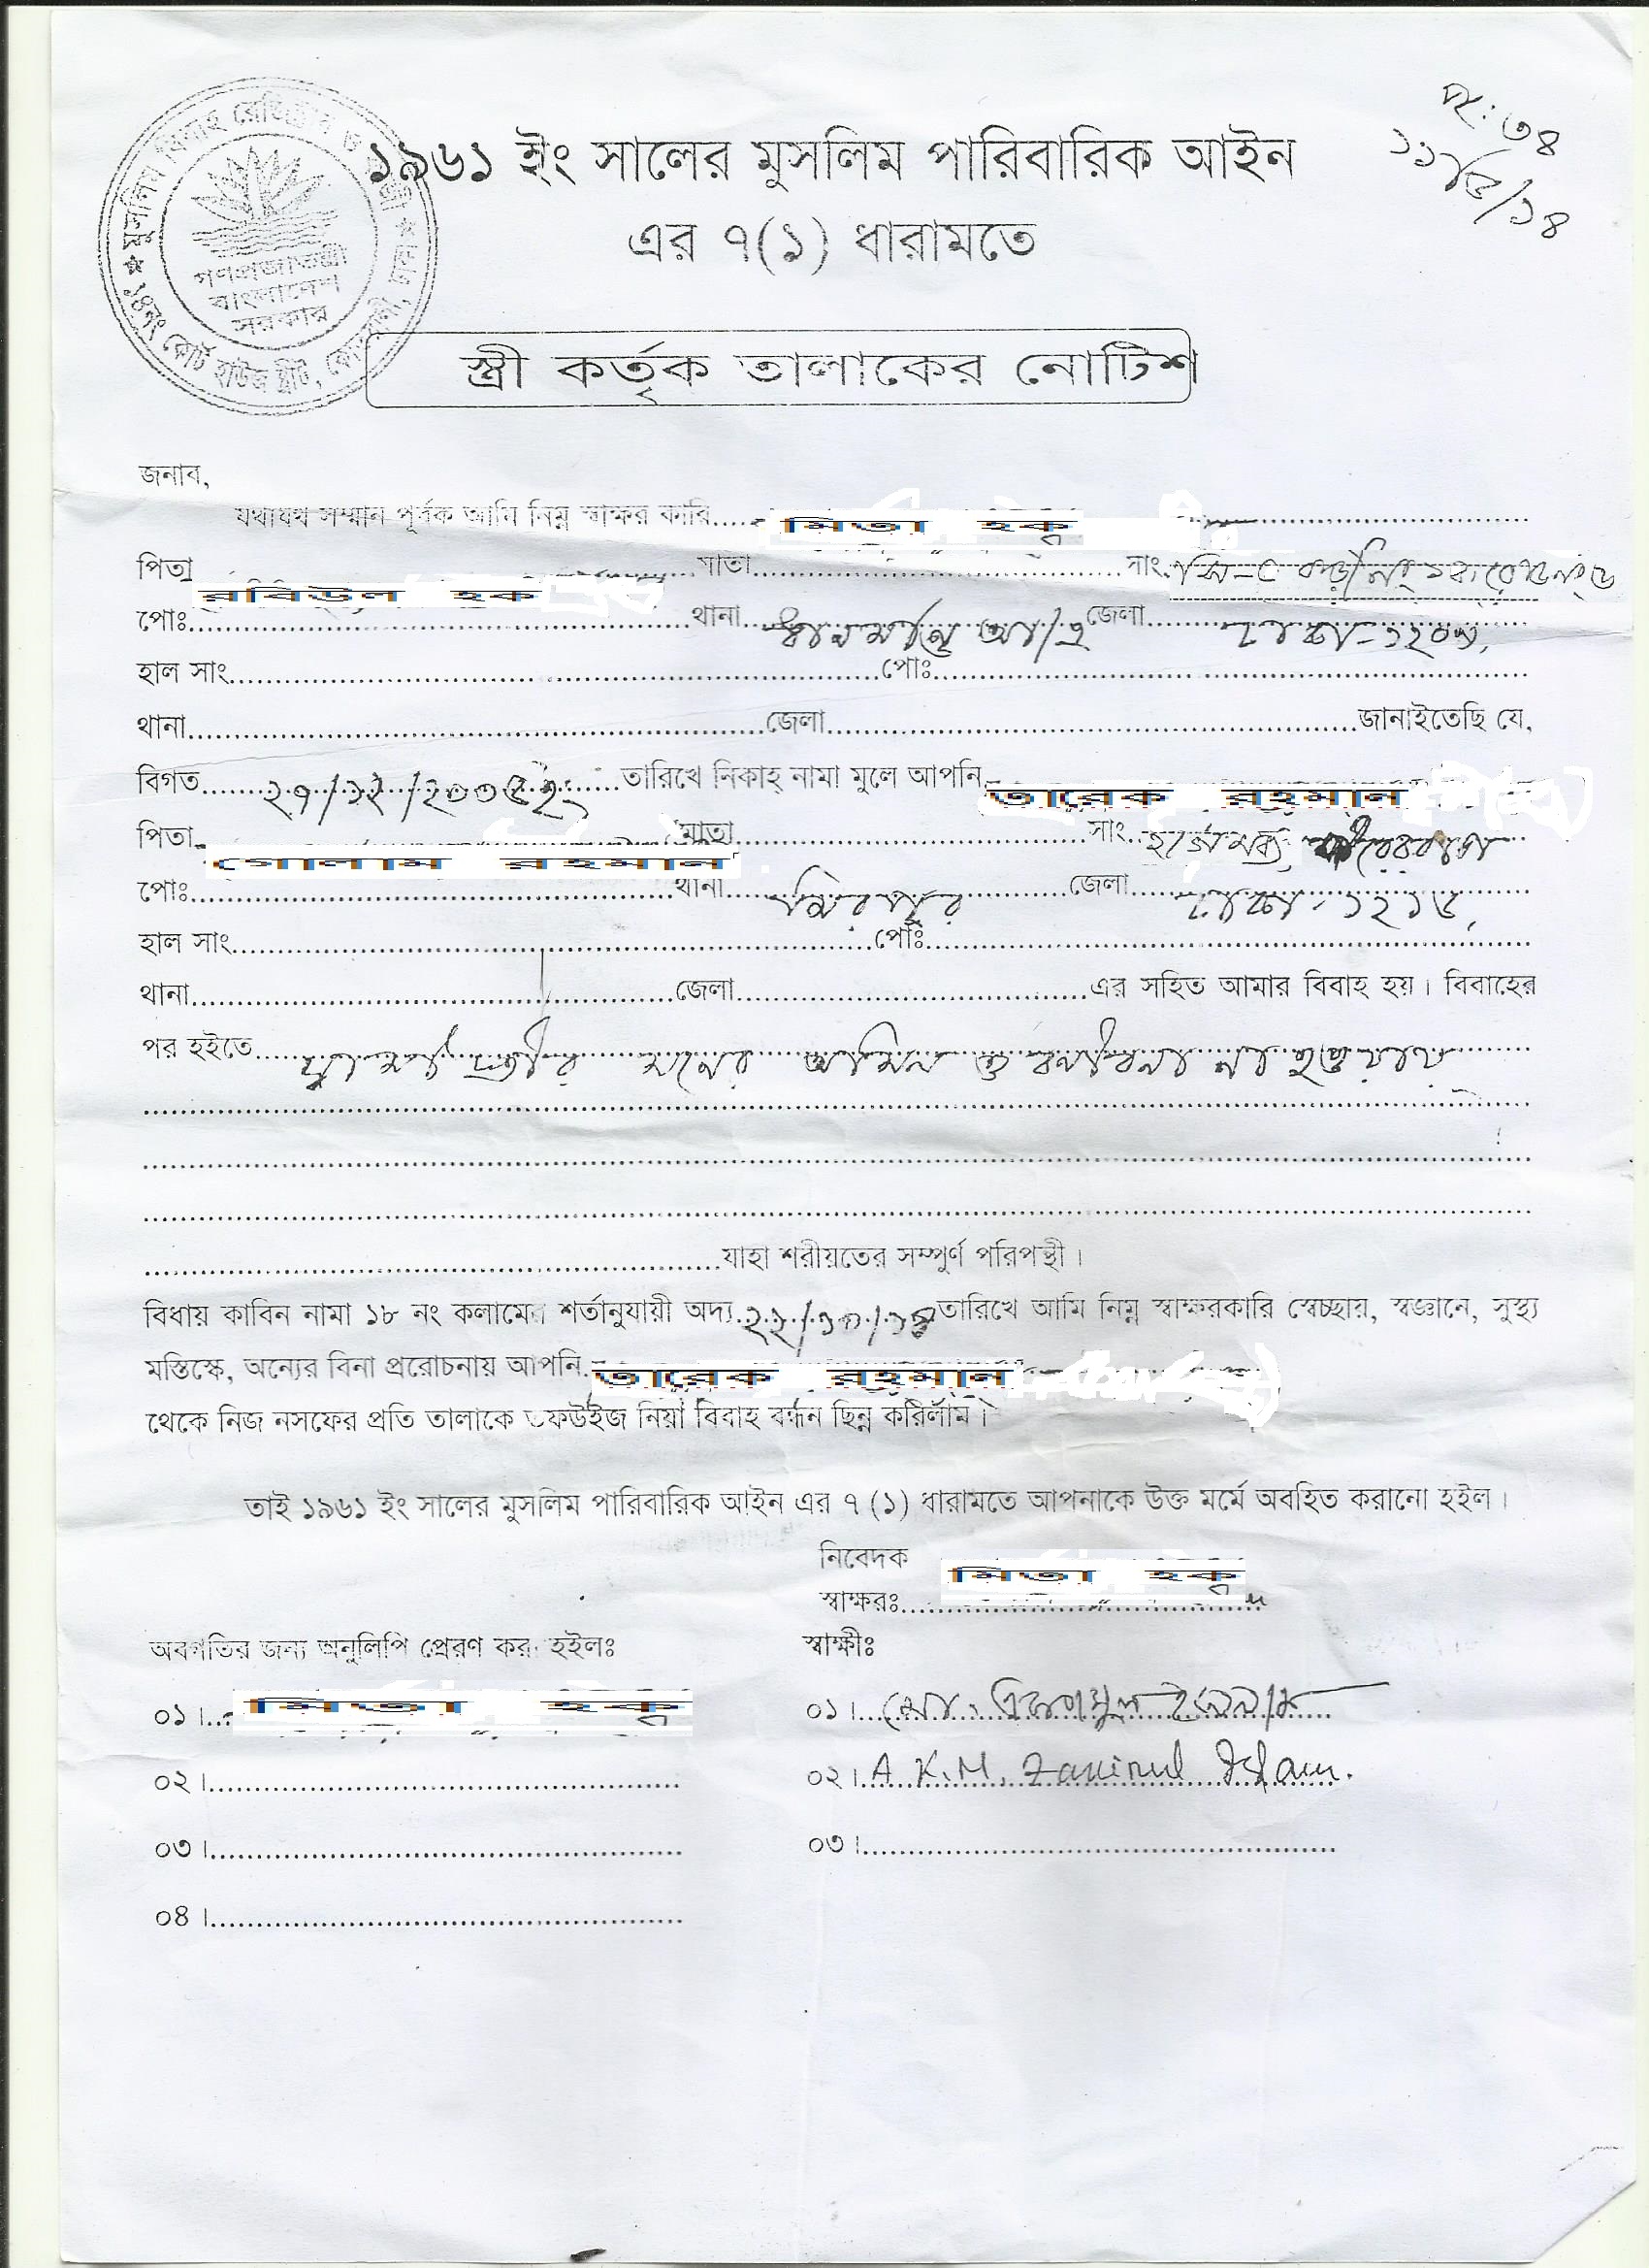 নং: ৩৪
মুসলিম বিবাহ রেজিষ্ট্রার ও
কোর্ট হাউজ ষ্ট্রীট,
গণপ্রজাতন্ত্রী
বাংলাদেশ
সরকার
১৯৬১ ইং সালের মুসলিম পারিবারিক আইন
এর ৭(১) ধারামতে
স্ত্রী কর্তৃক তালাকের নোটিশ
জনাব,
যথাযথ সম্মান পূর্বক আমি নিম্ন স্বাক্ষর কারি..... মিতা হক
পিতা রবিউল হক মাতা..... সাং.
পোঃ..... থানা..... ধানমন্ডি আ/এ জেলা..... ঢাকা-১২০৯,
হাল সাং..... পোঃ.....
থানা..... জেলা..... জানাইতেছি যে,
বিগত..... ২৭/১২/২০০৫ইং তারিখে নিকাহ্ নামা মুলে আপনি তারেক রহমান
পিতা গোলাম রহমান মাতা..... সাং.
পোঃ..... থানা..... মিরপুর জেলা..... ঢাকা-১২১৬,
হাল সাং..... পোঃ.....
থানা..... জেলা..... এর সহিত আমার বিবাহ হয়। বিবাহের
পর হইতে..... স্বামী স্ত্রীর মনের অমিল ও বনীবনা না হওয়ায়
..... যাহা শরীয়তের সম্পুর্ণ পরিপন্থী।
বিধায় কাবিন নামা ১৮ নং কলামের শর্তানুযায়ী অদ্য ২২/১০/১৩ তারিখে আমি নিম্ন স্বাক্ষরকারি স্বেচ্ছায়, স্বজ্ঞানে, সুস্থ্য
মস্তিস্কে, অন্যের বিনা প্ররোচনায় আপনি. তারেক রহমান
থেকে নিজ নসফের প্রতি তালাকে তফউইজ নিয়া বিবাহ বন্ধন ছিন্ন করিলাম।
তাই ১৯৬১ ইং সালের মুসলিম পারিবারিক আইন এর ৭ (১) ধারামতে আপনাকে উক্ত মর্মে অবহিত করানো হইল।
নিবেদক
স্বাক্ষরঃ..... মিতা হক
অবগতির জন্য অনুলিপি প্রেরণ করা হইলঃ
০১।... মিতা হক
০২।.....
০৩।.....
০৪।.....
স্বাক্ষীঃ
০১।... মোঃ
০২।. A.K.M. Zamirul Islam.
০৩।.....